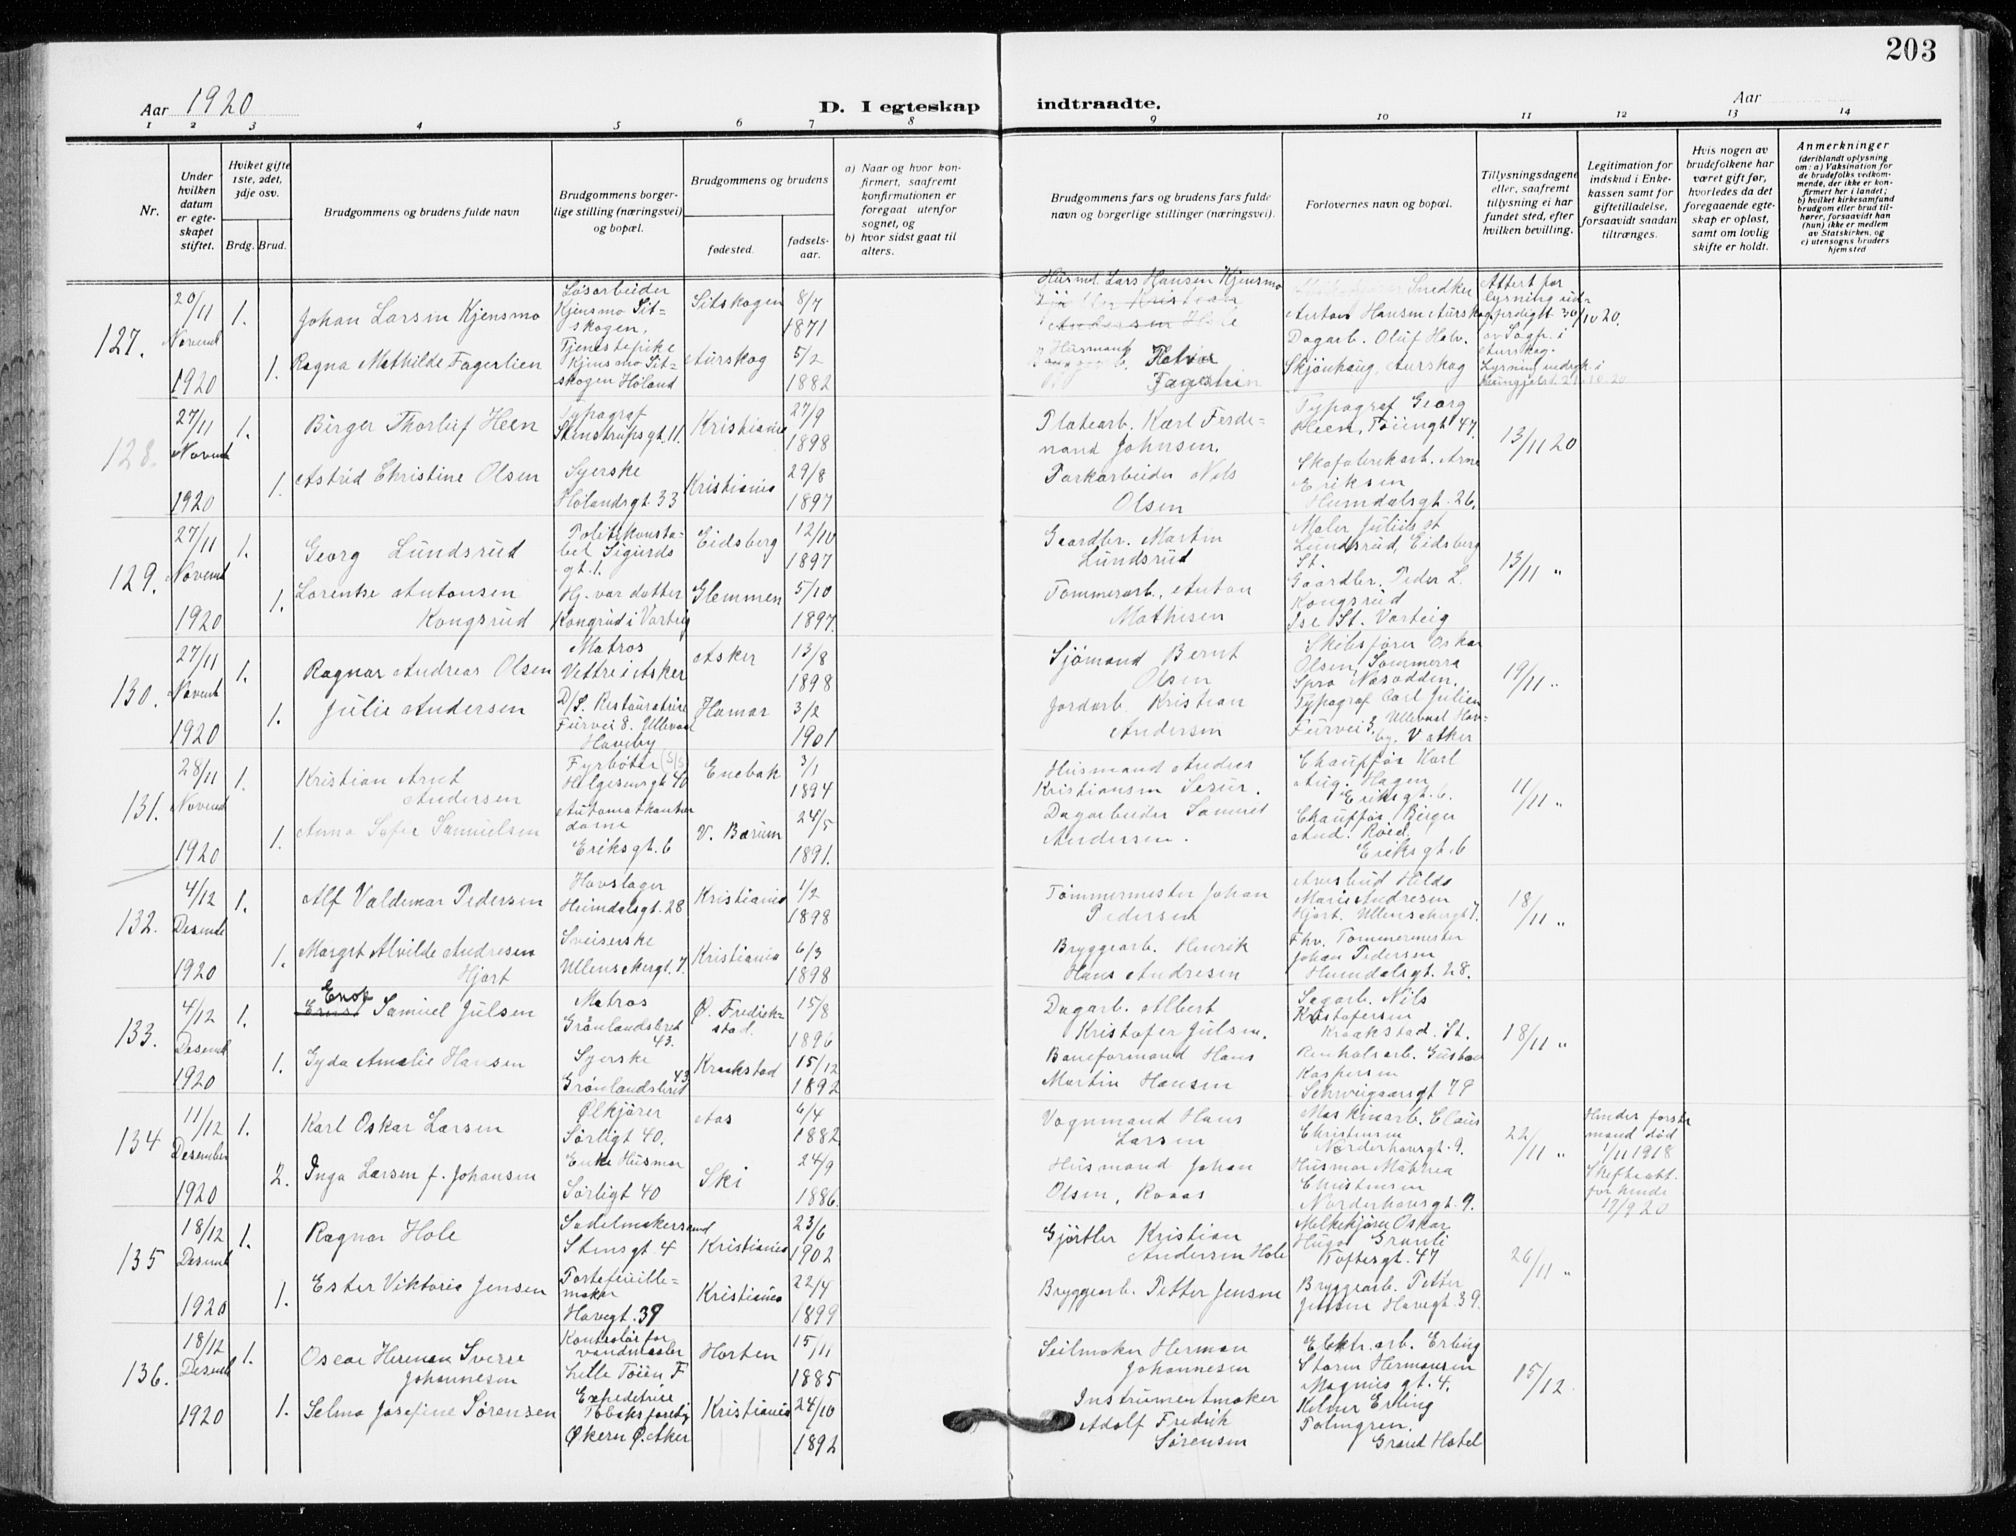 203
Aar 1920
D. I egteskap
indtraadte.
Aar
1 2 3 4 5 6 7 8 9 10 11 12 13 14
Nr.
Under hvilken datum er egteskapet stiftet.
Hvilket gifte 1ste, 2det, 3dje osv.
Brdg. Brud.
Brudgommens og brudens fulde navn
Brudgommens borgerlige stilling (næringsvei) og bopæl.
Brudgommens og brudens
fødested.
fødselsaar.
a) Naar og hvor konfirmert, saafremt konfirmationen er foregaat utenfor sognet, og
b) hvor sidst gaat til alters.
Brudgommens fars og brudens fars fulde navn og borgerlige stillinger (næringsvei).
Forlovernes navn og bopæl.
Tillysningsdagene eller, saafremt tillysning ei har fundet sted, efter hvilken bevilling.
Legitimation for indskud i Enkekassen samt for giftetilladelse, forsaavidt saadan tiltrænges.
Hvis nogen av brudefolkene har været gift før, hvorledes da det foregaaende egteskap er opløst, samt om lovlig skifte er holdt.
Anmerkninger
(deriblandt oplysning om: a) Vaksination for de brudefolks vedkommende, der ikke er konfirmert her i landet;
b) hvilket kirkesamfund brudgom eller brud tilhører, forsaavidt han (hun) ikke er medlem av Statskirken, og
c) utensogns bruders hjemsted
127.
20/11 Novemb 1920
1. Johan Larsen Kjensmo
Løsarbeider Kjensmo Sitskogen.
Sitskogen 8/7 1871
Husmd. Lars Hansen Kjensmo
Snedker Anton Hansen Aurskog
Attest for lysning udfærdiget 30/10 20. av Sogpr. i Aurskog.
1. Ragna Mathilde Fagerlien
Tjenestepike Kjensmo Sitskogen Høland
Aurskog 5/2 1882
Husmand
Dagarb. Oluf Halv. Skjønhaug, Aurskog
128.
27/11 Novemb 1920
1. Birger Thorleif Heen
Typograf Stenstrupsgt. 11.
Kristiania 27/9 1898
Platearb. Karl Ferdinand Johnsen.
Typograf Georg Heen, Tøiengt 47.
13/11 20
1. Astrid Christine Olsen
Syerske Hølandsgt. 33
Kristiania 29/8 1897
Parkarbeider Nils Olsen
Skofabrikarb. Arne Eriksen Heimdalsgt. 26.
129.
27/11 Novemb 1920
1. Georg Lundsrud
Politikonstabel Sigurds gt. 1.
Eidsberg 12/10 1897
Gaardbr. Martin Lundsrud
Maler Julius Lundsrud, Eidsberg St.
13/11 "
1. Lorentse Antonsen Kongsrud
Hj. var. datter Kongsrud i Varteig
Glemmen 5/10 1897.
Tømmerarb. Anton Mathisen
Gaardbr. Peder L. Kongsrud Ise St. Varteig
130.
27/11 Novemb 1920
1. Ragnar Andreas Olsen
Matros Vettre i Asker
Asker 13/8 1898
Sjømand Bernt Olsen
Skibsfører Oskar Olsen, Sommerro Spro Næsodden.
19/11 "
1. Julie Andersen
Furvei 8. Ullevaal Haveby
Hamar 3/2 1901
Jordarb. Kristian Andersen
Typograf Carl Julien Furvei 8, Ullevaal Haveby. V. Aker
131.
28/11 Novemb 1920
1. Kristian Arnt Andersen
Fyrbøter (S/S) Helgesensgt. 40
Enebak 3/1 1894
Husmand Andreas Kristiansen
Chauffør Karl Aug. Hagen Eriksgt. 6.
11/11 "
1. Anna Sofie Samuelsen
Eriksgt. 6
V. Bærum 24/5 1891.
Dagarbeider Samuel Andersen.
Chauffør Birger And. Roed. Eriksgt. 6
132.
4/12 Desemb 1920
1. Alf Valdemar Pedersen
Hovslager Heimdalsgt. 28
Kristiania 1/2 1898
Tømmermester Johan Pedersen
Hilda Marie Andresen Hjort. Ullensakergt 7.
18/11 "
1. Margret Alvilde Andresen Hjort
Sveiserske Ullensakergt. 7.
Kristiania 6/3 1898
Bryggearb. Henrik Hans Andresen
Fhv. Tømmermester Johan Pedersen Heimdalsgt. 28.
133.
4/12 Desemb 1920
1. Enok Samuel Julsen
Matros Grønlandsleret 43.
Ø. Fredrikstad. 15/8 1896
Dagarb. Albert Kristofer Julsen.
Sagarb. Nils Kristofersen Kraakstad. St.
18/11 "
1. Gyda Amalie Hansen
Syerske Grønlandsleret 43
Kraakstad 15/12 1892
Baneformand Hans Martin Hansen
Renholdsarb. Gustav Kaspersen Schweigaardsgt 79
134
11/12 Desember 1920
1. Karl Oskar Larsen
Ølkjører Sørligt 40.
Aas 6/4 1882
Vognmand Hans Larsen
Maskinarb. Claus Christensen Norderhovsgt. 9.
22/11 "
Hendes første mand død 1/11 1918 Skifteatt. for hende 17/9 20
2. Inga Larsen f. Johansen
Enke Husmor Sørligt 40
Ski 24/9 1886.
Husmand Johan Olsen, Roaas
Husmor Mathea Christensen Norderhovsgt. 9.
135
18/12 Desemb 1920
1. Ragnar Hole
Sadelmakersvend Stensgt. 4
Kristiania 23/6 1902
Gjørtler Kristian Andersen Hole
Melkekjører Oskar Hugo Granli Toftesgt. 47
26/11 "
1. Ester Viktoria Jensen
Portefeuillemaker Havegt. 39
Kristiania 22/4 1899
Bryggearb. Petter Jensen
Bryggearb. Petter Jensen Havegt. 39.
136.
18/12 Desemb 1920
1. Oscar Herman Sverre Johannesen
Kontrolør for vandmaaler Lille Tøien F
Horten 15/11 1885
Seilmaker Herman Johannesen
Elektr. arb. Erling Storm Hermansen Magnus gt. 4.
15/12.
1. Selma Josefine Sørensen
Expeditrise Økern Ø. Aker
Kristiania 24/10 1892
Instrumentmaker Adolf Fredrik Sørensen
Kelner Erling Palmgren. Grand Hotel